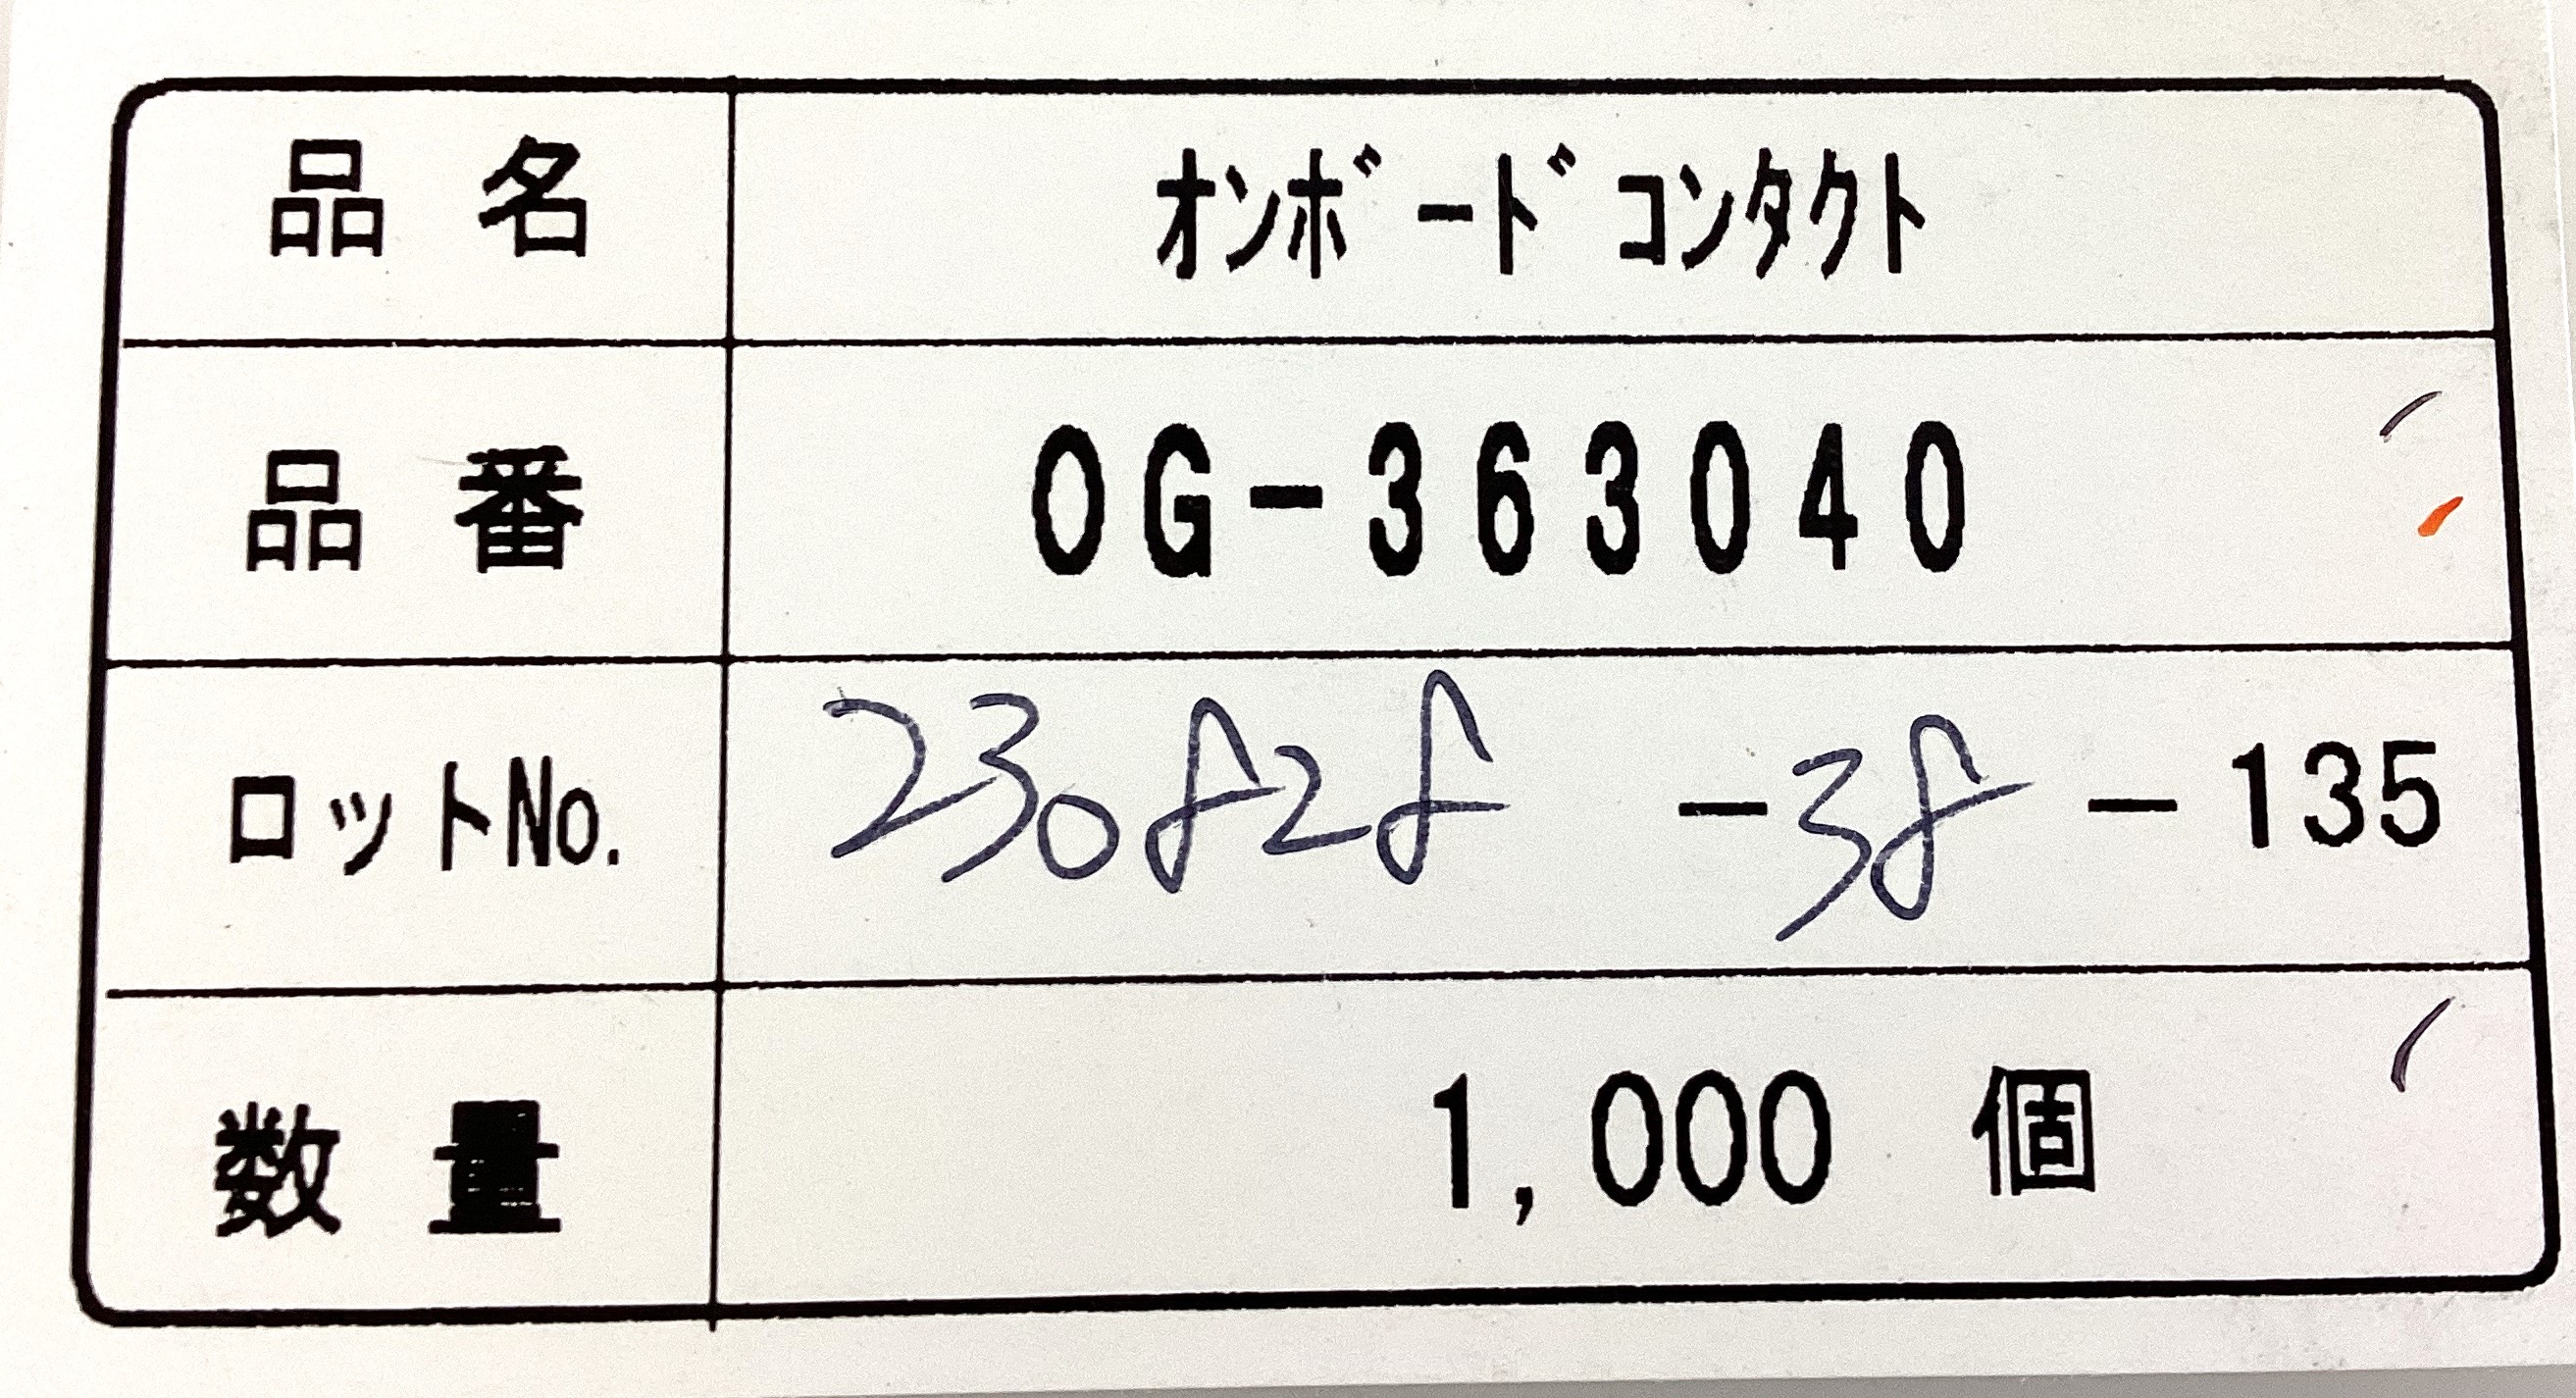 品名 ｵﾝﾎﾞｰﾄﾞｺﾝﾀｸﾄ
品番 OG-363040
ロットNo. 230828 -38 -135
数量 1,000 個